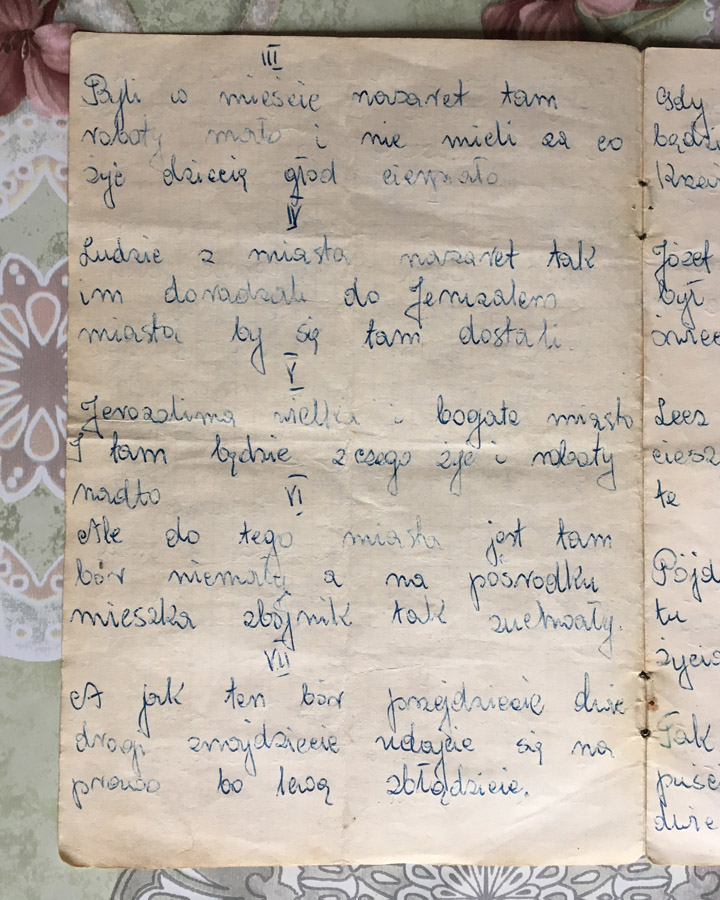 III
Byli w mieście nazaret tam
roboty mało i nie mieli za co
żyć dziecię głod cierpiało
IV
Ludzie z miasta nazaret tak
im doradzali do Jeruzalem
miasta by się tam dostali.
V
Jerozolima wielka i bogate miasto
I tam będzie z czego żyć i roboty
nadto
VI
Ale do tego miasta jest tam
bór niemały a na pośrodku
mieszka zbójnik tak zuchwały.
VII
A jak ten bór przejdziecie dwie
drogi znajdziecie udajcie się na
prawo bo lewą zbłądzicie.
Gdy
Józef
był
Lecz
te
tu
Tak
dwie